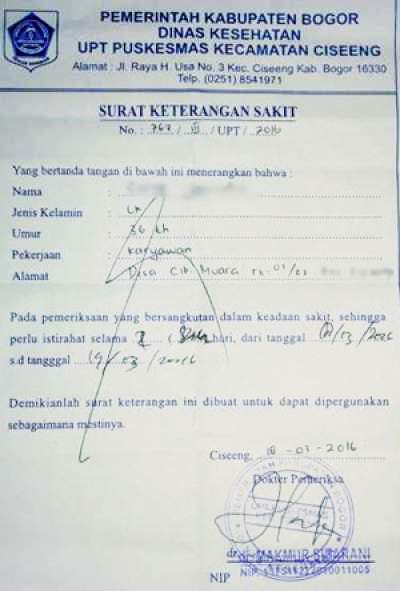 PEMERINTAH KABUPATEN BOGOR
DINAS KESEHATAN
UPT PUSKESMAS KECAMATAN CISEENG
Alamat : Jl. Raya H. Usa No. 3 Kec. Ciseeng Kab. Bogor 16330
Telp. (0251) 8541971
SURAT KETERANGAN SAKIT
No. : 767 / III / UPT / 2016
Yang bertanda tangan di bawah ini menerangkan bahwa :
Nama :
Jenis Kelamin : Lk
Umur : 36 th
Pekerjaan : Karyawan
Alamat : Desa Cib. Muara
Pada pemeriksaan yang bersangkutan dalam keadaan sakit, sehingga
perlu istirahat selama ( hari, dari tanggal /03 /2016
s.d tangggal /03 /2016
Demikianlah surat keterangan ini dibuat untuk dapat dipergunakan
sebagaimana mestinya.
Ciseeng, -03-2016
Dokter Pemeriksa
dr. MAKMUR
NIP